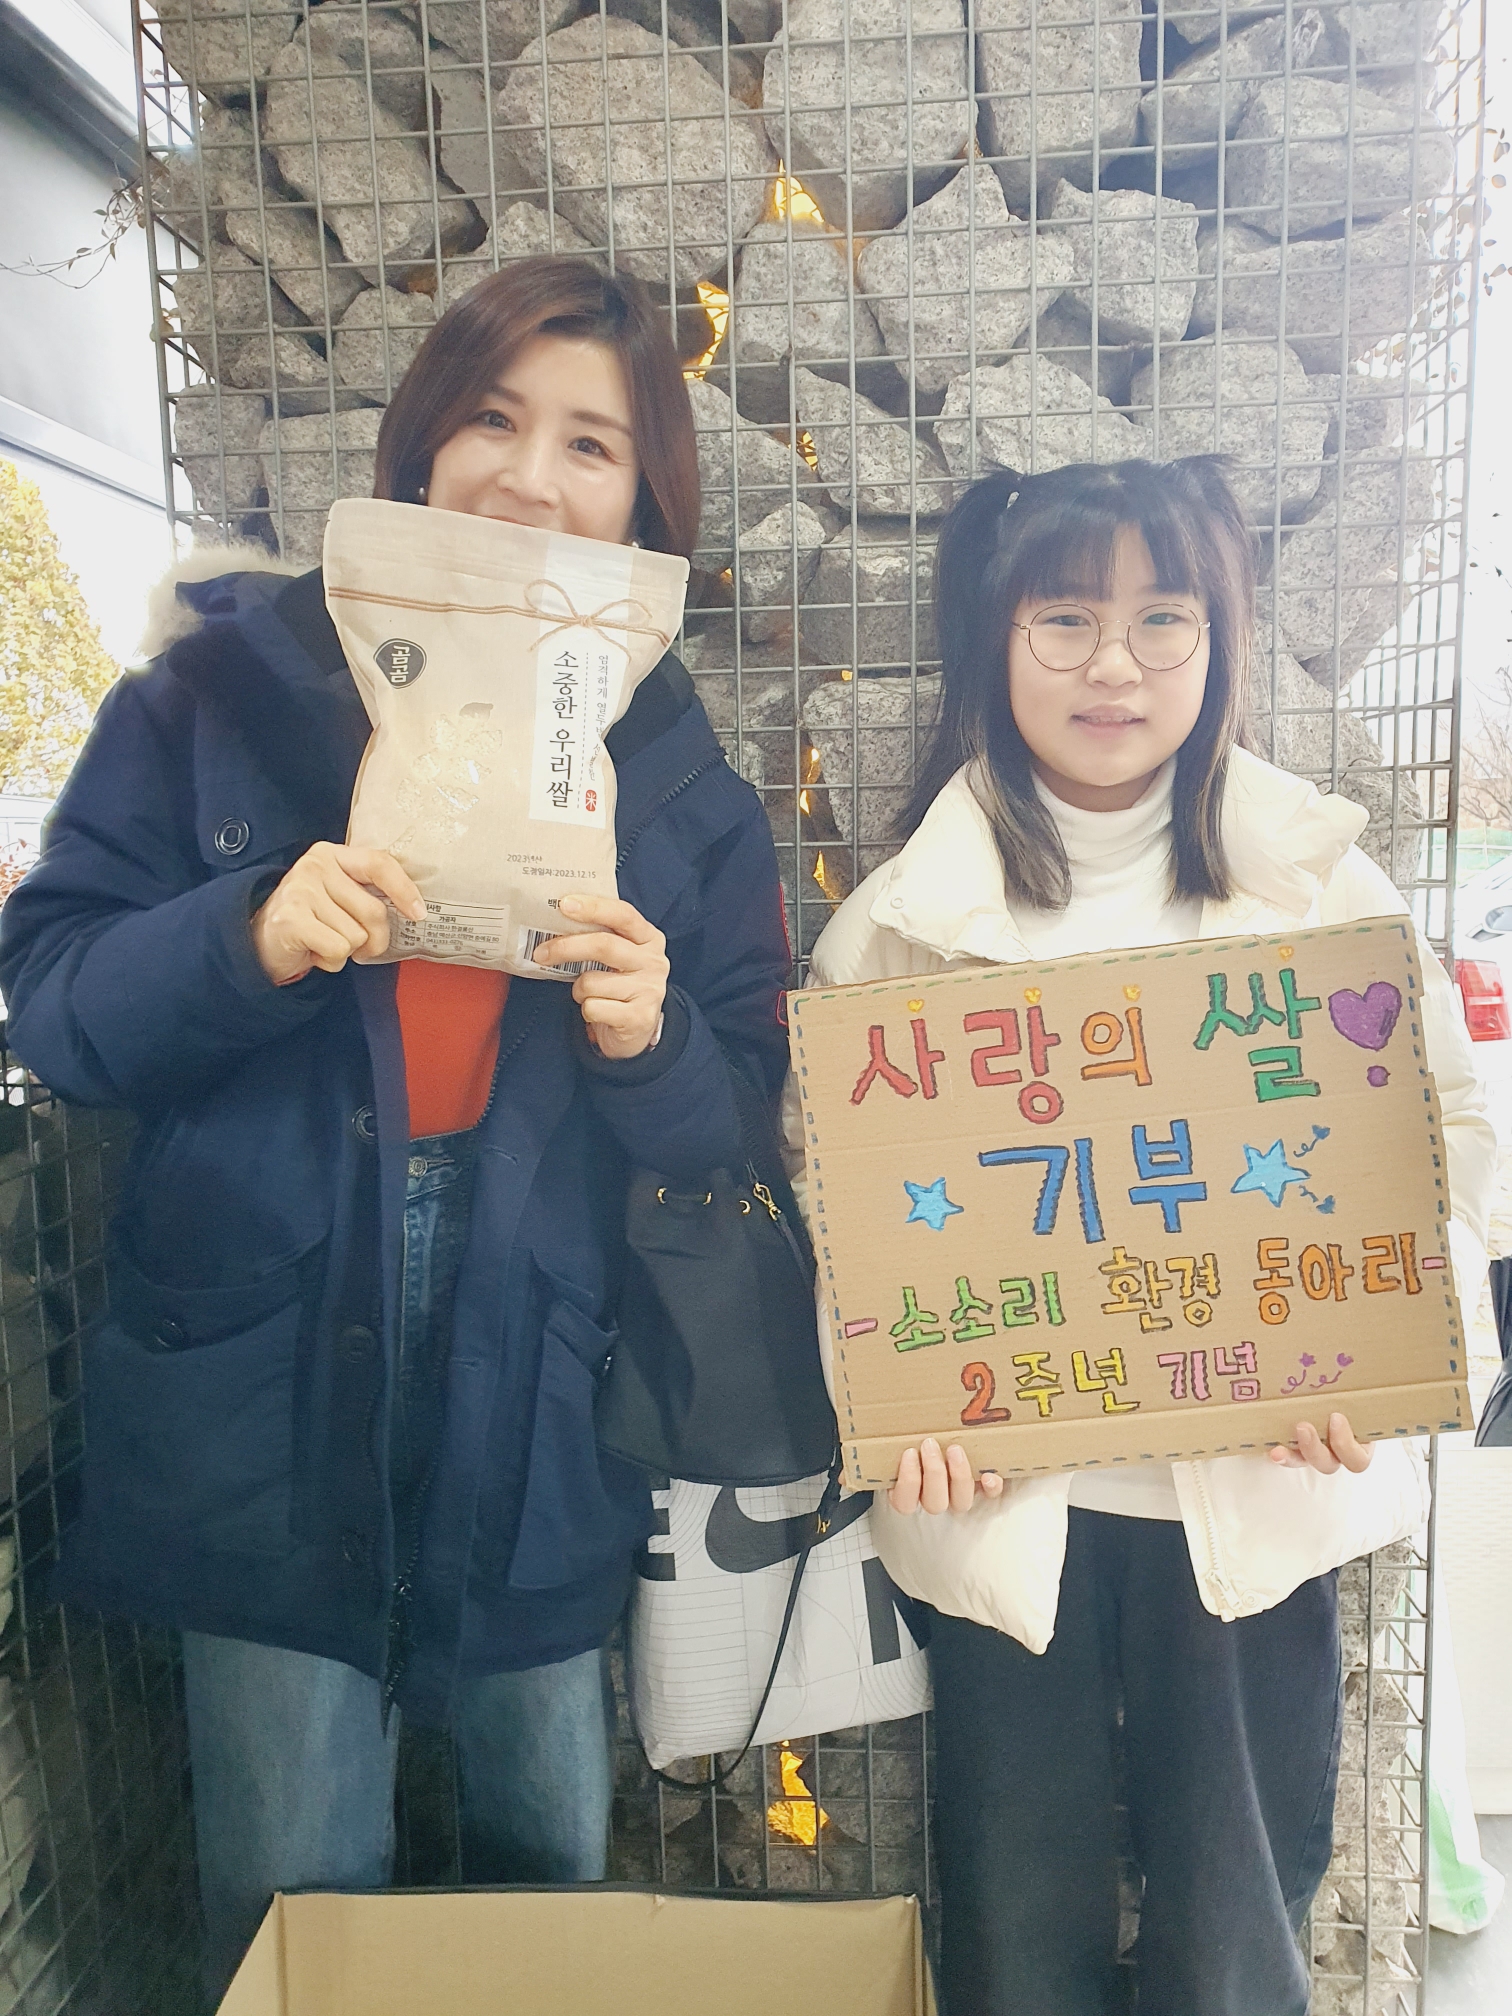 곰곰
소중한 우리쌀
米
도정일자:2023.12.15
사랑의 쌀
기부
-소소리 환경 동아리-
2주년 기념